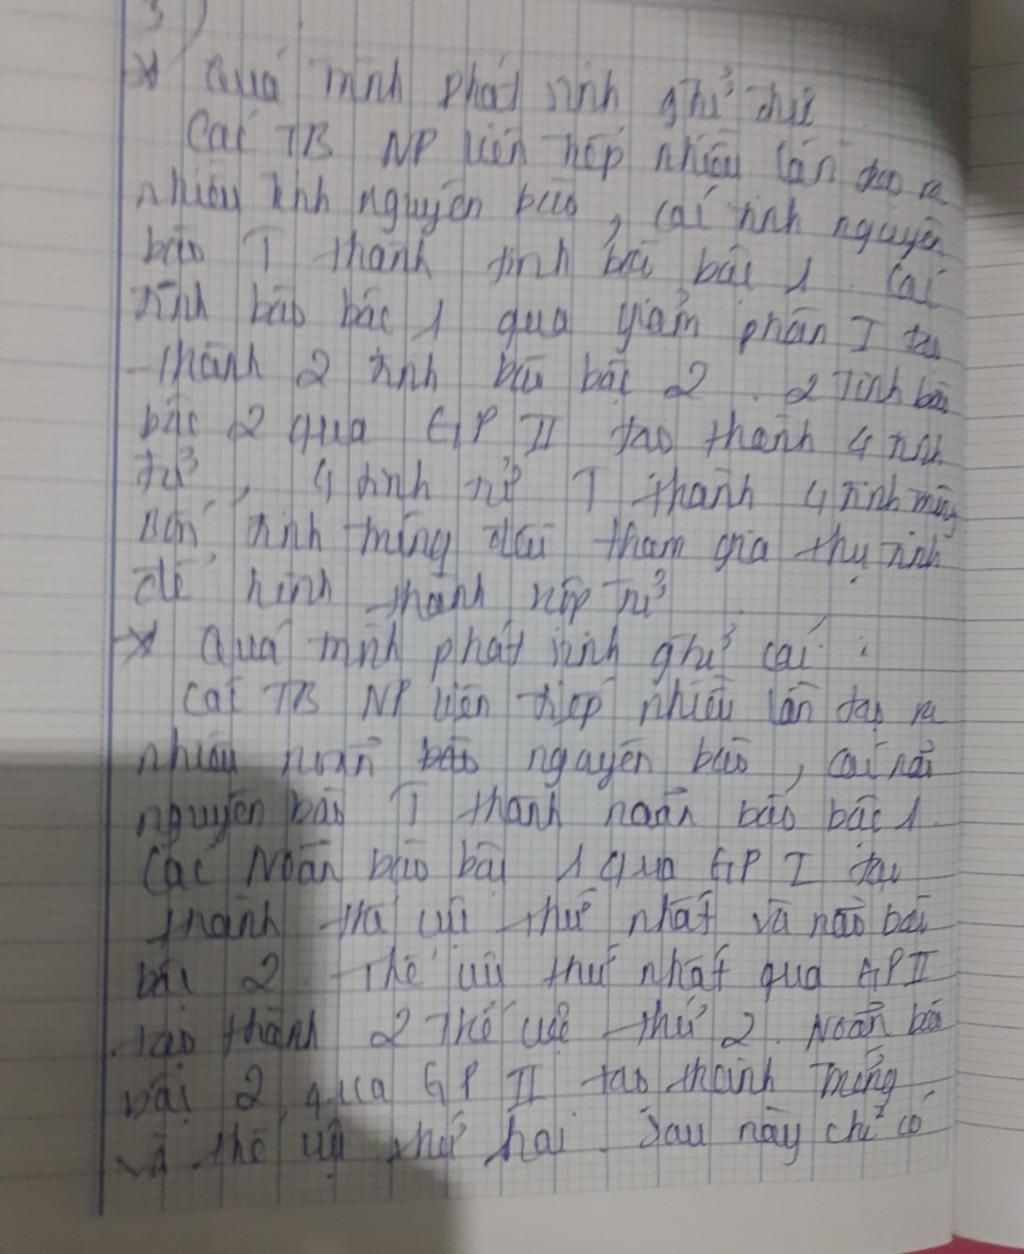 3)
* Quá trình phát sinh giử đực
Các TB NP liên tiếp nhiều lần tạo ra
nhiều tinh nguyên bào, các tinh nguyên
bào T thành tinh bào bậc 1. Các
tinh bào bậc 1 qua giảm phân I tạo
thành 2 tinh bào bậc 2. 2 Tinh bào
bậc 2 qua GP II tạo thành 4 tinh
tử, 4 tinh tử T thành 4 tinh trùng
tinh trùng đều tham gia thụ tinh
để hình thành hợp tử
* Quá trình phát sinh giử cái :
Các TB NP liên tiếp nhiều lần tạo ra
nhiều noãn nguyên bào, các noãn
nguyên bào T thành noãn bào bậc 1.
Các Noãn bào bậc 1 qua GP I tạo
thành thể cực thứ nhất và noãn bào
bậc 2. Thể cực thứ nhất qua GP II
tạo thành 2 Thể cực thứ 2. Noãn bào
bậc 2 qua GP II tạo thành Trứng
và thể cực thứ hai. Sau này chỉ có